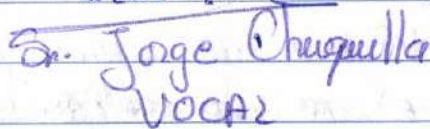 Sr. Jorge Chuquilla
VOCAL